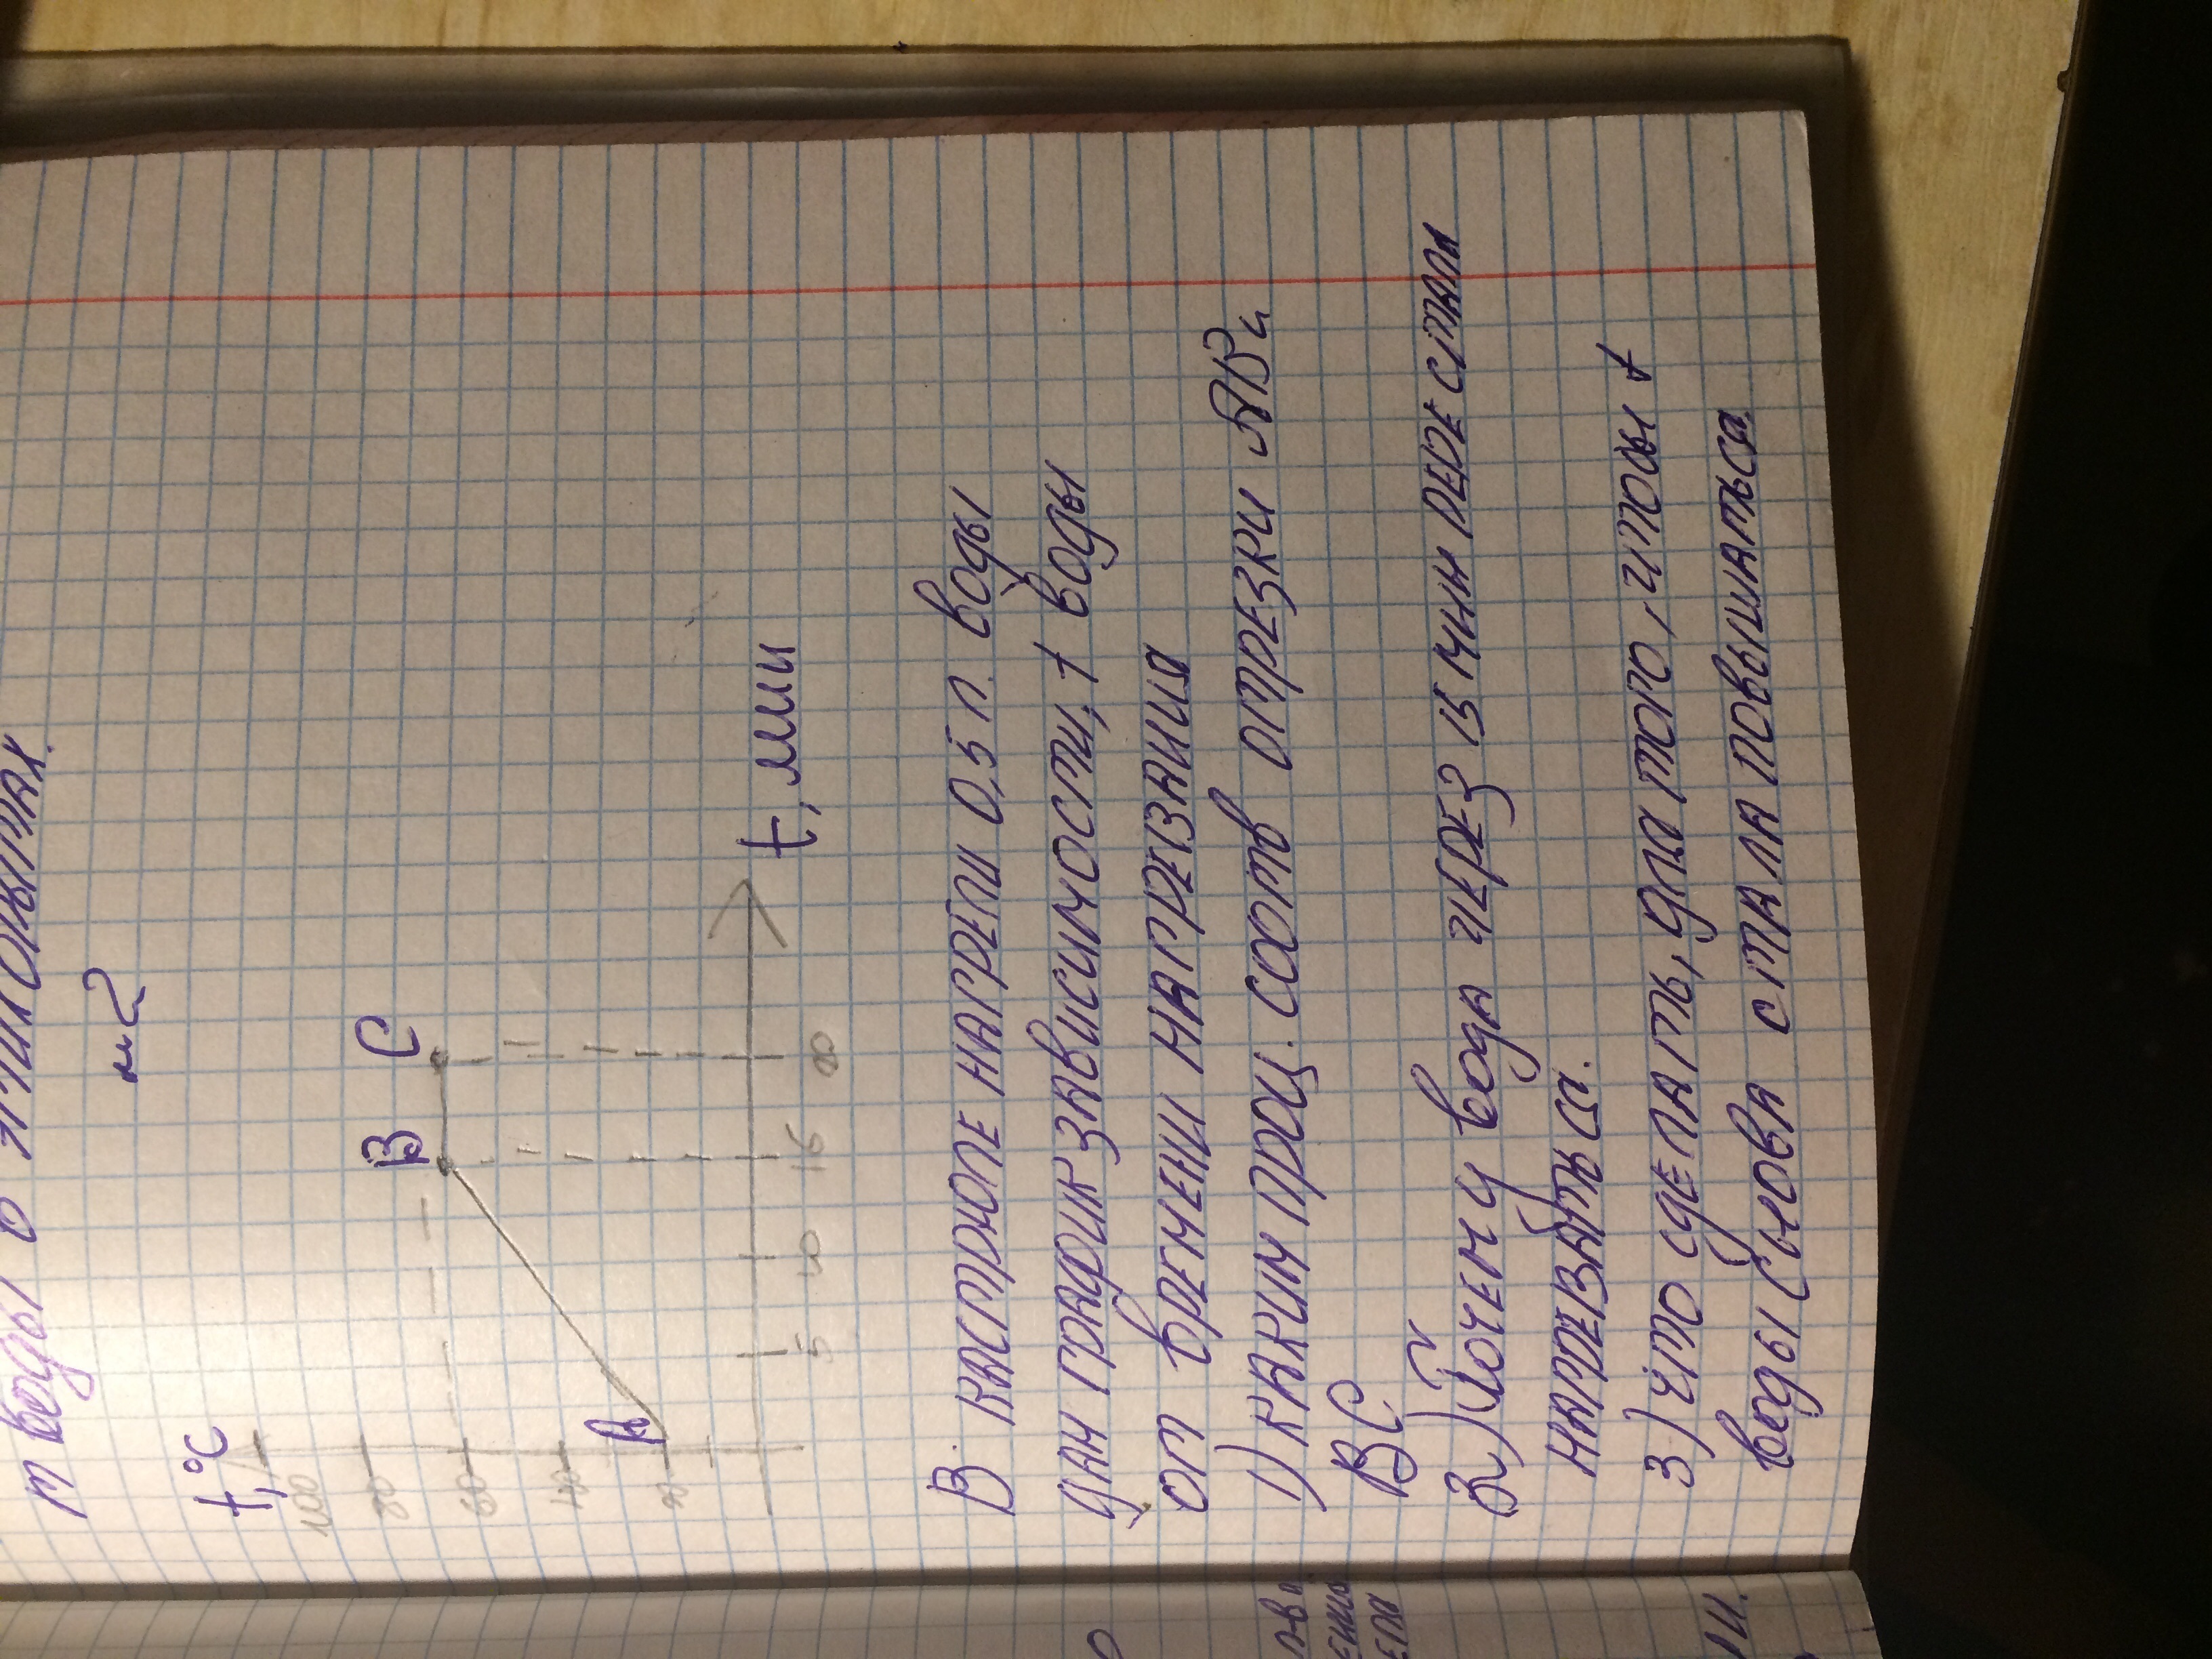 m воды в
№2
t,°C
100
80
60
40
20
A
B
C
5
10
15
20
t, мин
В кастрюле нагрели 0,5 л. воды
дан график зависимости, t воды
от времени нагревания
1) каким проц. соотв отрезки АВ и
ВС
2) Почему вода через 15 мин перестала
нагреваться.
3) Что сделать, для того, чтобы t
воды снова стала повышаться.